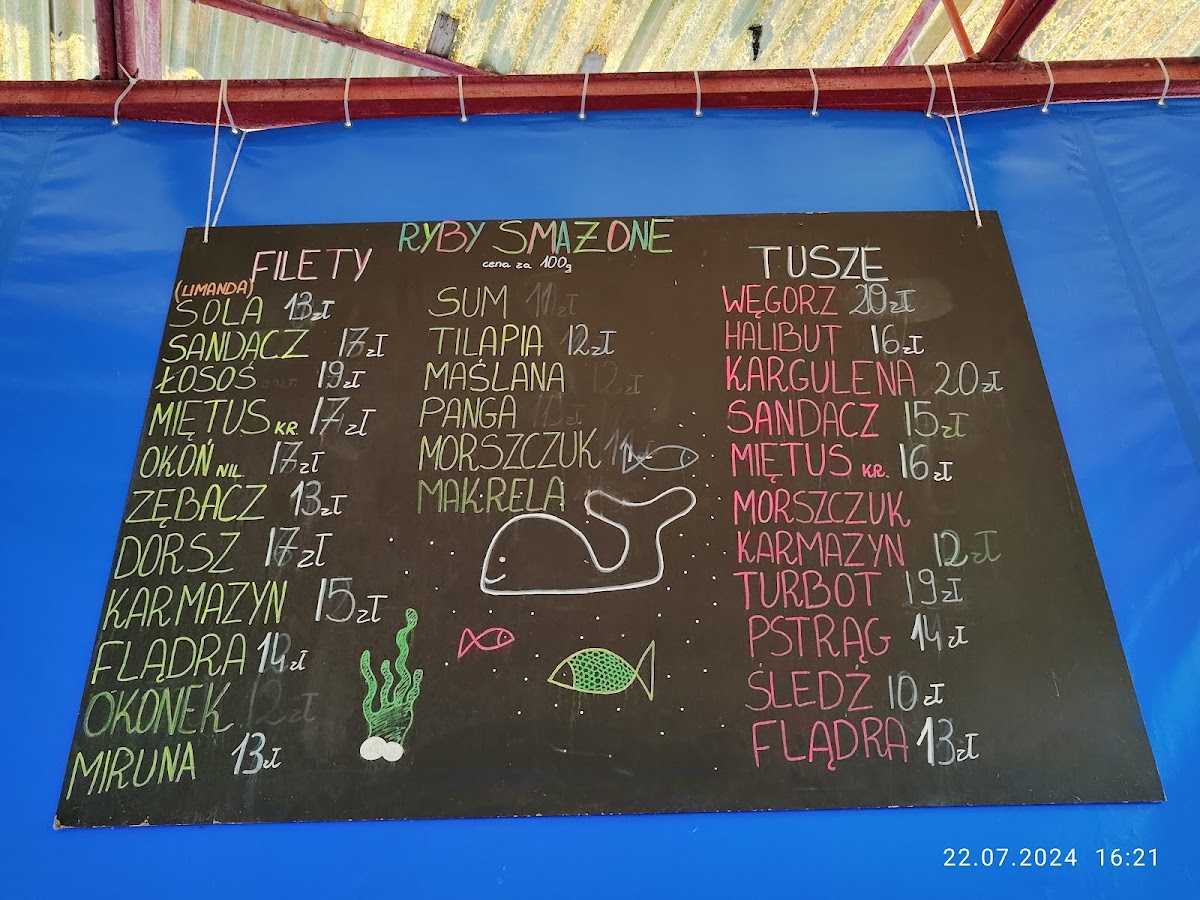 RYBY SMAŻONE
cena za 100g
FILETY
(LIMANDA)
SOLA 13zł
SANDACZ 17zł
ŁOSOŚ 19zł
MIĘTUS KR. 17zł
OKOŃ NIL 17zł
ZĘBACZ 13zł
DORSZ 17zł
KARMAZYN 15zł
FLĄDRA 14zł
OKONEK 12zł
MIRUNA 13zł
SUM
TILAPIA 12zł
MAŚLANA
PANGA
MORSZCZUK
MAKRELA
TUSZE
WĘGORZ 20zł
HALIBUT 16zł
KARGULENA 20zł
SANDACZ 15zł
MIĘTUS KR. 16zł
MORSZCZUK
KARMAZYN 12zł
TURBOT 19zł
PSTRĄG 14zł
ŚLEDŹ 10zł
FLĄDRA 13zł
22.07.2024 16:21